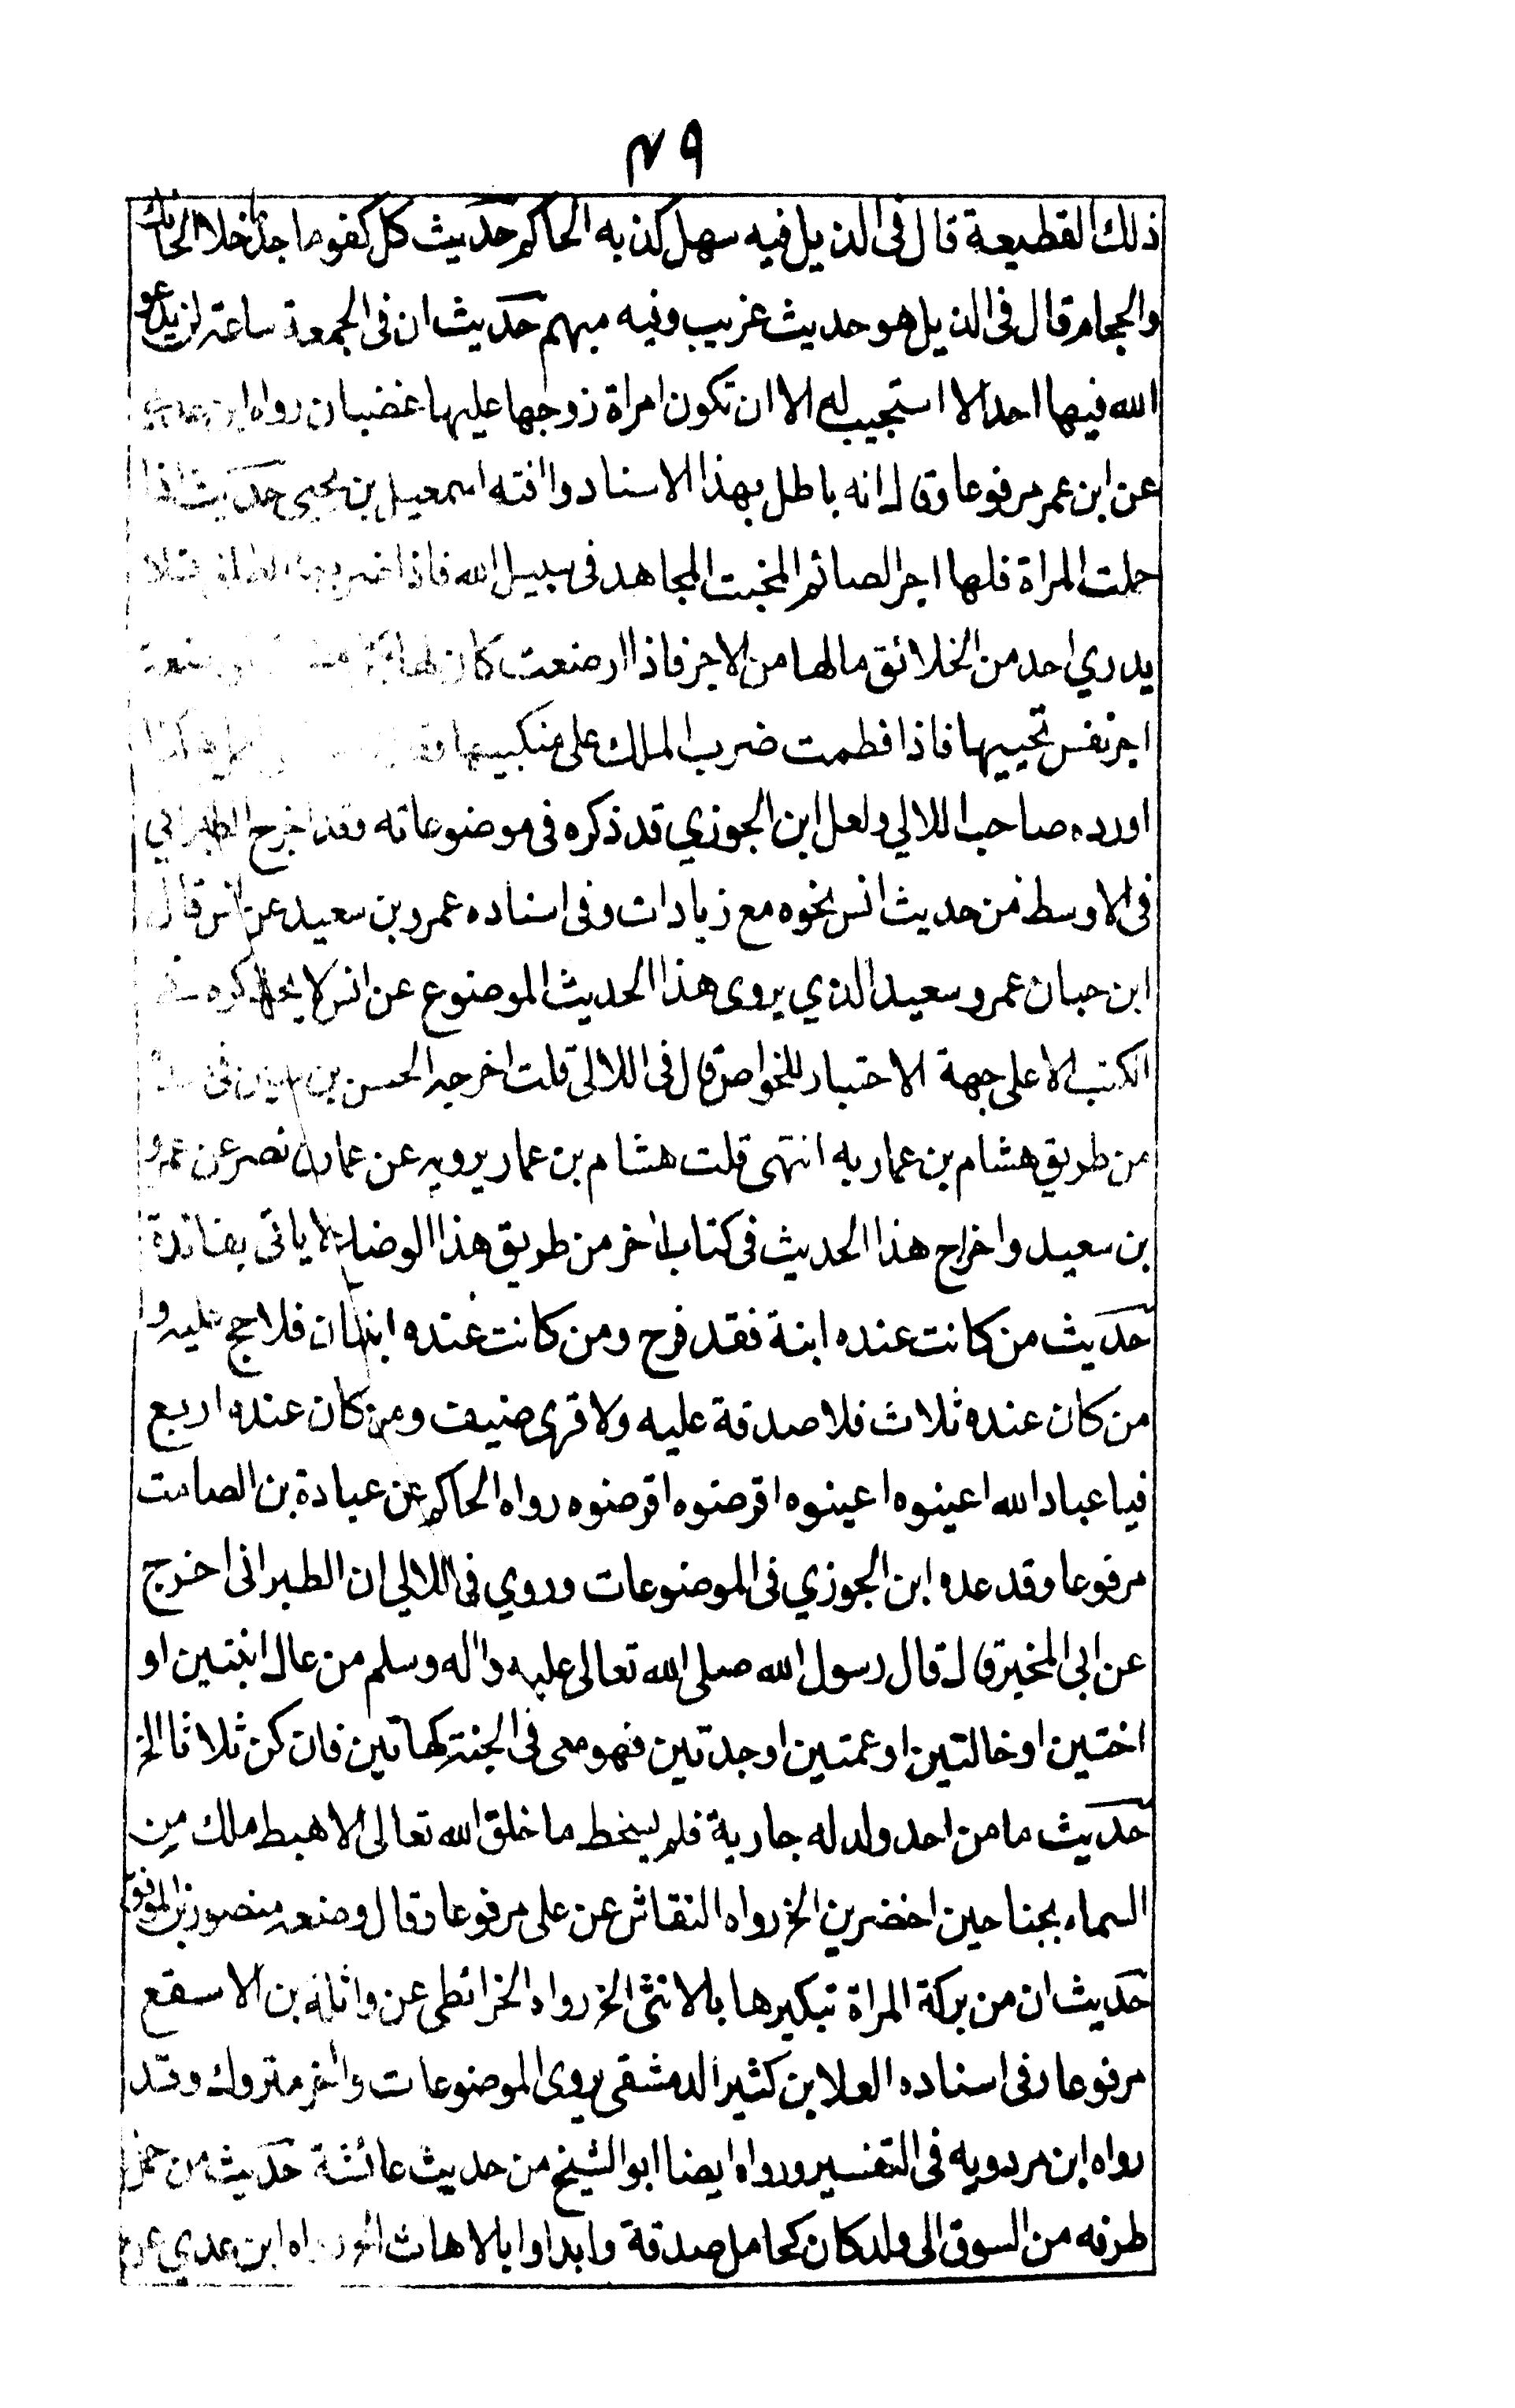 ٤٩
ذلك القطيعة قال فى الذيل فيه سهل كذبه الحاكم حديث كل كفو ما جد خلا الحائك
والحجام قال فى الذيل هو حديث غريب وفيه مبهم حديث ان فى الجمعة ساعة لن يدعو
الله فيها احد الا استجيب له الا ان تكون امراة زوجها عليها غضبان رواه ابن عدي
عن ابن عمر مرفوعا وقال انه باطل بهذا الاسناد وافته اسمعيل بن يحيى حديث اذا
حملت المراة فلها اجر الصائم المخبت المجاهد فى سبيل الله فاذا ضربها الطلق فلا
يدري احد من الخلائق مالها من الاجر فاذا ارضعت كان لها بكل
اجر نفس تحييها فاذا فطمت ضرب الملك على منكبيها هكذا
اورده صاحب اللالي ولعل ابن الجوزي قد ذكره فى موضوعاته وقد اخرج الطبراني
فى الاوسط من حديث انس نحوه مع زيادات وفى اسناده عمرو بن سعيد عن انس قال
ابن حبان عمرو سعيد الذي يروى هذا الحديث الموضوع عن انس لا يحل ذكره فى
الكتب الا على جهة الاختبار للخواص قال فى اللالى قلت اخرجه الحسن بن سفين فى
من طريق هشام بن عمار به انتهى قلت هشام بن عمار يرويه عن عمار بن نصر عن عمرو
بن سعيد واخراج هذا الحديث فى كتاب اخر من طريق هذا الوضاع لا ياتى بفائدة
حديث من كانت عنده ابنة فقد فرح ومن كانت عنده ابنتان فلا حج عليه و
من كان عنده ثلاث فلا صدقة عليه ولا قرى ضيف ومن كان عنده اربع
فيا عباد الله اعينوه اعينوه اقرضوه اقرضوه رواه الحاكم عن عبادة بن الصامت
مرفوعا وقد عده ابن الجوزي فى الموضوعات وروي فى اللالي ان الطبرانى اخرج
عن ابى المخير قال قال رسول الله صلى الله تعالى عليه واله وسلم من عال ابنتين او
اختين او خالتين او عمتين او جدتين فهو معى فى الجنة كهاتين فان كن ثلاثا الخ
حديث ما من احد ولد له جارية فلم يسخط ما خلق الله تعالى الا هبط ملك من
السماء بجناحين اخضرين الخ رواه النقاش عن على مرفوعا وقال وضعه منصور بن الموفق
حديث ان من بركة المراة تبكيرها بالانثى الخ رواه الخرائطى عن واثلة بن الاسقع
مرفوعا وفى اسناده العلا بن كثير الدمشقى يروى الموضوعات واخر متروك وقد
رواه ابن مردويه فى التفسير ورواه ايضا ابو الشيخ من حديث عائشة حديث من حمل
طرفه من السوق الى ولد كان كحامل صدقة وابداوا بالاناث الخ رواه ابن عدي عن